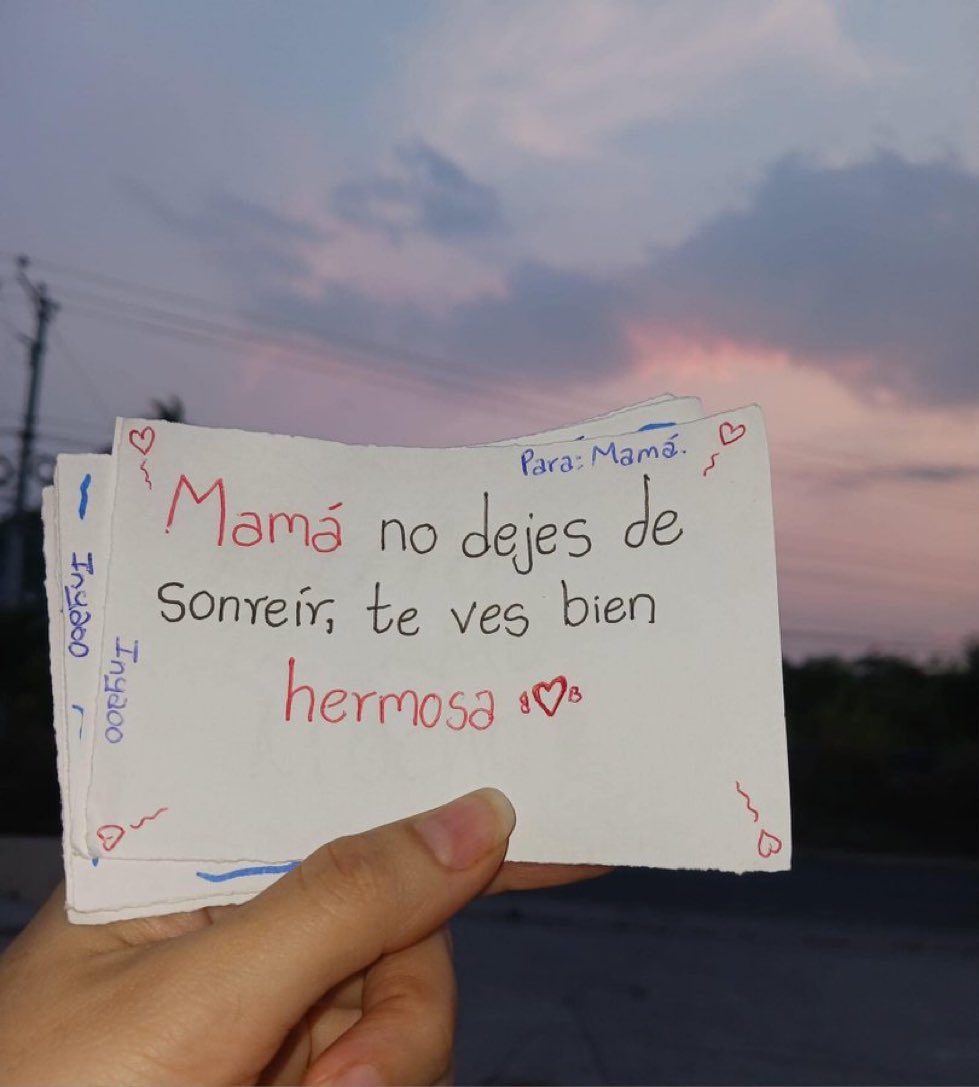 Para: Mamá.
Mamá no dejes de
sonreír, te ves bien
hermosa
Ingaoo
Ingaoo